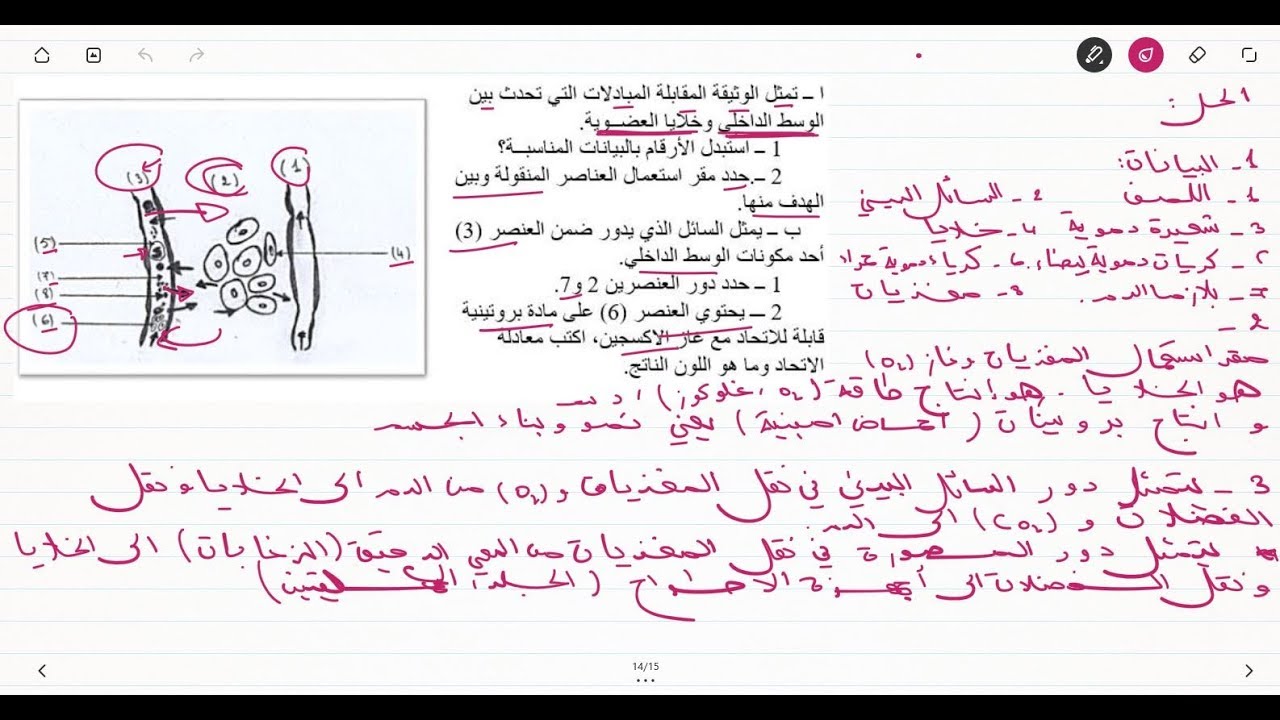 ا ــ تمثل الوثيقة المقابلة المبادلات التي تحدث بين
الوسط الداخلي وخلايا العضــوية.
1 ــ استبدل الأرقام بالبيانات المناسبــة؟
2 ــ حدد مقر استعمال العناصر المنقولة وبين
الهدف منها.
ب ــ يمثل السائل الذي يدور ضمن العنصر (3)
أحد مكونات الوسط الداخلي.
1 ــ حدد دور العنصرين 2 و7.
2 ــ يحتوي العنصر (6) على مادة بروتينية
قابلة للاتحاد مع غاز الاكسجين، اكتب معادلة
الاتحاد وما هو اللون الناتج.
(3)
(2)
(1)
(5)
(4)
(7)
(8)
(6)
الحل:
1 - البيانات:
1 - اللمف 2 - السائل البيني
3 - شعيرة دموية 4 - خلايا
5 - كريات دموية بيضاء. 6 - كريات دموية حمراء
7 - بلازما الدم. 8 - مغذيات
2 -
مقر استعمال المغذيات وغاز (O2)
هو الخلايا. هو إنتاج طاقة (O2، غلوكوز)
و انتاج بروتينات (أحماض امينية) يعني نمو وبناء الجسم
3 - يتمثل دور السائل البيني في نقل المغذيات و(O2) من الدم الى الخلايا و نقل
الفضلات و (CO2) الى الدم.
يتمثل دور في نقل المغذيات من المعي الدقيق (الزغابات) الى الخلايا
ونقل الفضلات الى أجهزة الاطراح (الجلد،
14/15